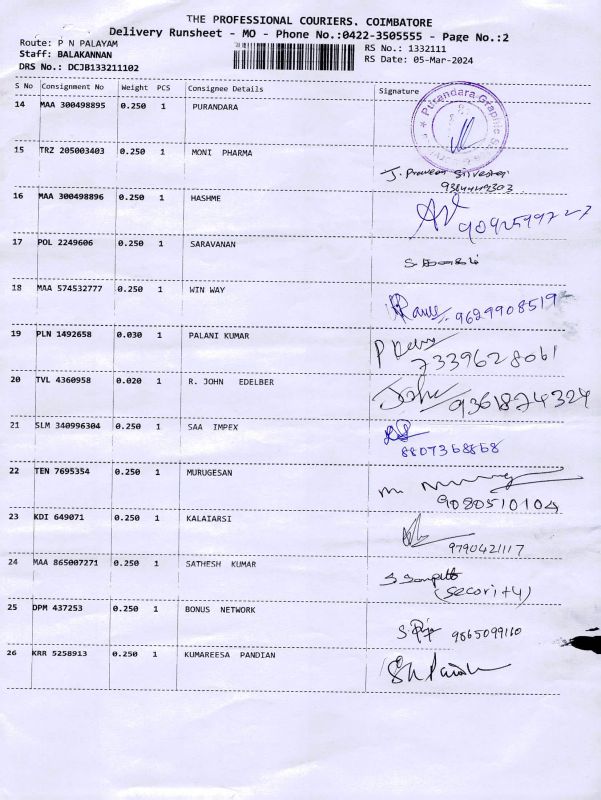 THE PROFESSIONAL COURIERS. COIMBATORE
Delivery Runsheet - MO - Phone No.:0422-3505555 - Page No.:2
Route: P N PALAYAM
RS No.: 1332111
Staff: BALAKANNAN
RS Date: 05-Mar-2024
DRS No.: DCJB133211102
S No Consignment No Weight PCS Consignee Details Signature
14 MAA 300498895 0.250 1 PURANDARA
Purandara Graphic
15 TRZ 205003403 0.250 1 MONI PHARMA
J. Praveen Silvester
16 MAA 300498896 0.250 1 HASHME
17 POL 2249606 0.250 1 SARAVANAN
18 MAA 574532777 0.250 1 WIN WAY
9629908519
19 PLN 1492658 0.030 1 PALANI KUMAR
7339628061
20 TVL 4360958 0.020 1 R. JOHN EDELBER
John 9361874324
21 SLM 340996304 0.250 1 SAA IMPEX
8807368868
22 TEN 7695354 0.250 1 MURUGESAN
9080510104
23 KDI 649071 0.250 1 KALAIARSI
9790421117
24 MAA 865007271 0.250 1 SATHESH KUMAR
(Security)
25 DPM 437253 0.250 1 BONUS NETWORK
9865099110
26 KRR 5258913 0.250 1 KUMAREESA PANDIAN